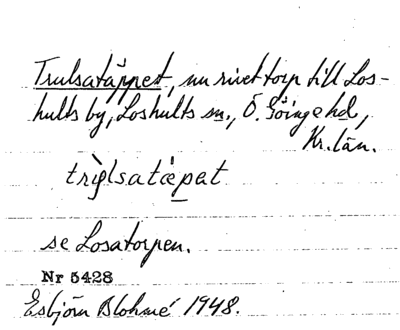 Trulsatäppet, nu rivet torp till Los-
hults by, Loshults sn., Ö. Göinge hd,
Kr. län.
trùlsatæpat
se Losatorpen.
Nr 5428
Esbjörn Blohmé 1948.